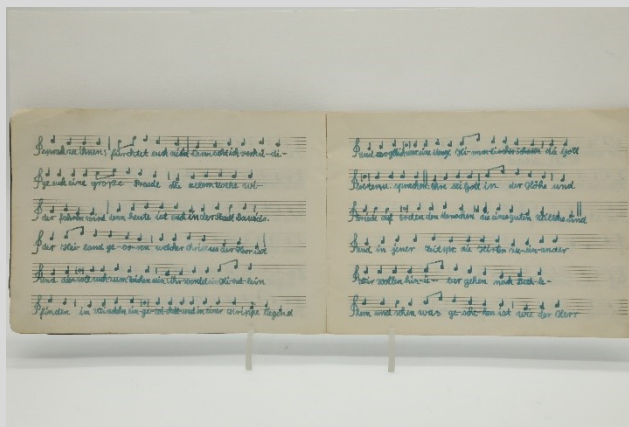 sprach zu ihnen: fürchtet euch nicht denn seht ich verkü-di-
ge euch eine große Freude die allem volke wi-
der fahren wird denn heute ist euch in der Stadt Davids.
der Hei land ge-bo-ren welcher Christus der Herr ist
Und das soll euch zum zeichen sein ihr werdet ein Kind-lein
finden in windeln ein-ge-wickelt und in einer Krippe liegend
und zugleich war eine Menge Him-mel-scher scharen die Gott
Priesen u. sprachen: Ehre sei Gott in der Höhe und
Friede auf erden den Menschen die eines guten willens sind
Und in jener zeit spr. die Hirten zu-ein-ander
Wir wollen hin-ü- ber gehen nach Beth-le-
hem und sehen was ge-sche-hen ist wie der Herr